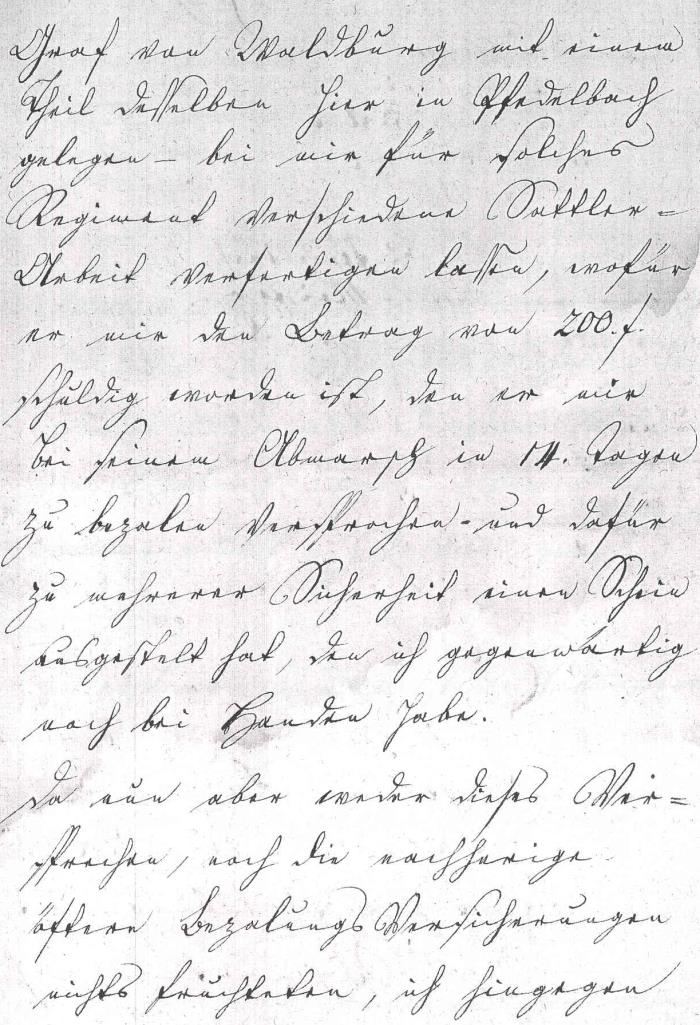 Graf von Waldburg mit einem
Theil desselben hier in Pfedelbach
gelegen – bei mir für solches
Regiment verschiedene Sattler-
Arbeit verfertigen lassen, wofür
er mir den Betrag von 200. f.
schuldig worden ist, den er mir
bei seinem Abmarsch in 14. Tagen
zu bezalen versprochen - und dafür
zu mehrerer Sicherheit einen Schein
ausgestelt hat, den ich gegenwärtig
noch bei Handen habe.
Da nun aber weder dieses Ver-
sprechen, noch die nachherige
öftere Bezalungs Versicherungen
nichts fruchteten, ich hingegen